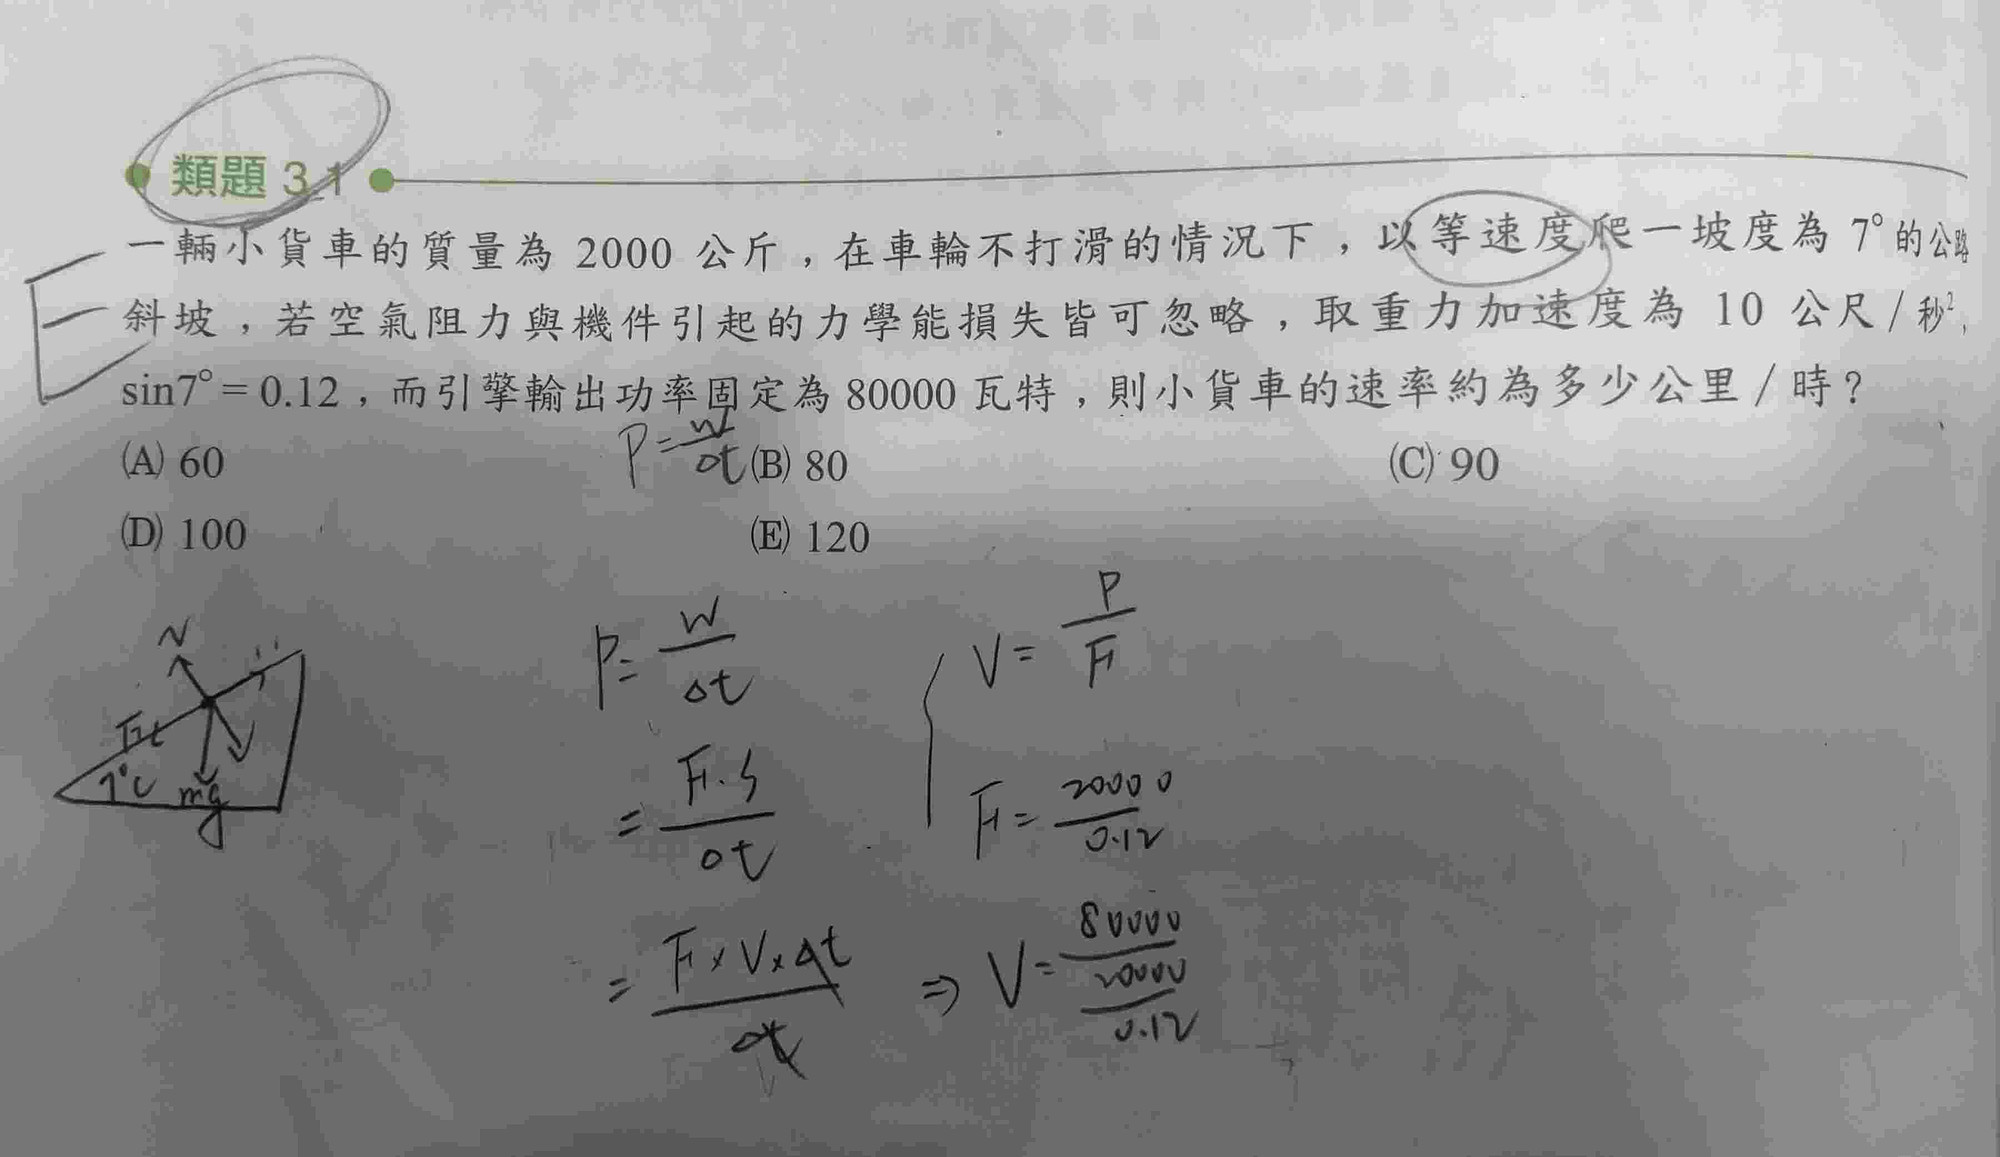 類題 3_1
一輛小貨車的質量為 2000 公斤，在車輪不打滑的情況下，以等速度爬一坡度為 7° 的公路
E
斜坡，若空氣阻力與機件引起的力學能損失皆可忽略，取重力加速度為 10 公尺/秒²，
sin7° = 0.12，而引擎輸出功率固定為 80000 瓦特，則小貨車的速率約為多少公里/時？
P = W/Δt
(A) 60 (B) 80 (C) 90
(D) 100 (E) 120
N
7°C mg
P = W/Δt
= F·S/Δt
= F×V×Δt/Δt
V = P/F
F = 20000/0.12
⇒ V = 80000/(20000/0.12)